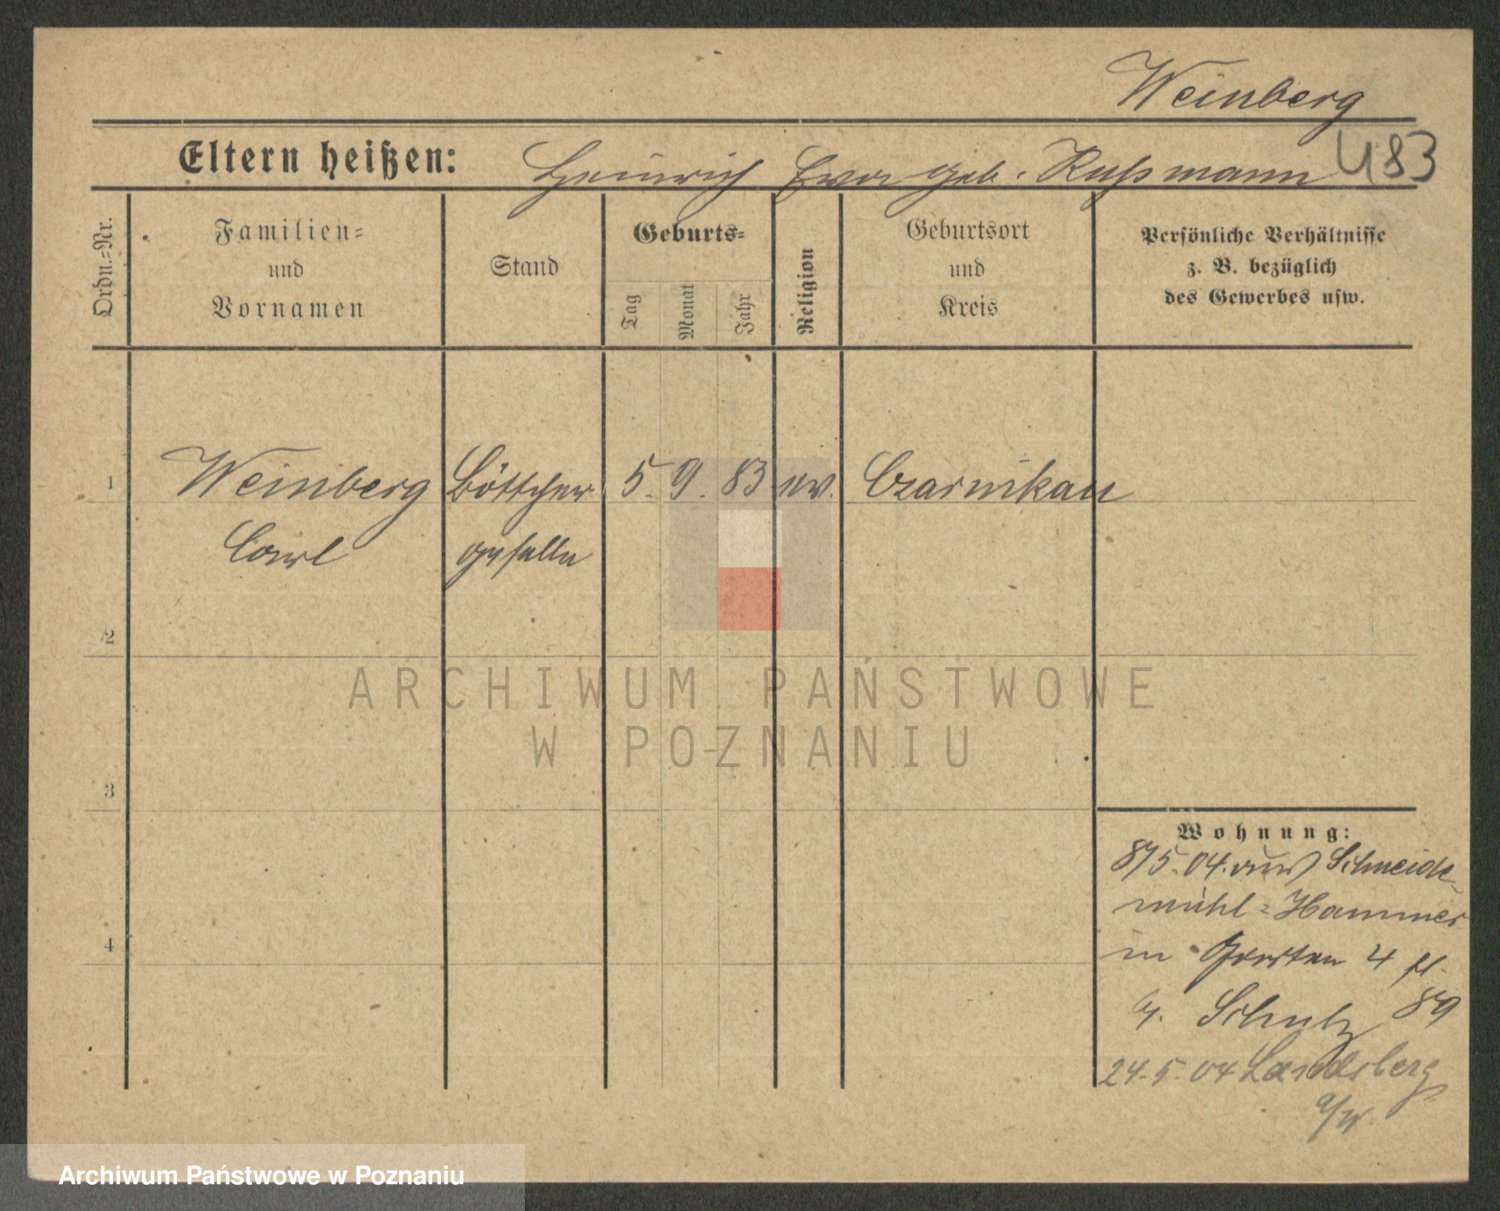 Weinberg
Eltern heißen: Heinrich Eva geb. Rußmann 483
Ordn.-Nr.
Familien-
und
Vornamen
Stand
Geburts-
Tag
Monat
Jahr
Religion
Geburtsort
und
Kreis
Persönliche Verhältnisse
z. B. bezüglich
des Gewerbes usw.
1 Weinberg Böttcher 5. 9. 83 ev. Czarnikau
Carl geselle
2
3
4
ARCHIWUM PAŃSTWOWE
W POZNANIU
Wohnung:
8/5. 04. aus Schneide-
mühl-Hammer
in 4
Schulz 89
24.5.04 Landsberg
a/W.
Archiwum Państwowe w Poznaniu